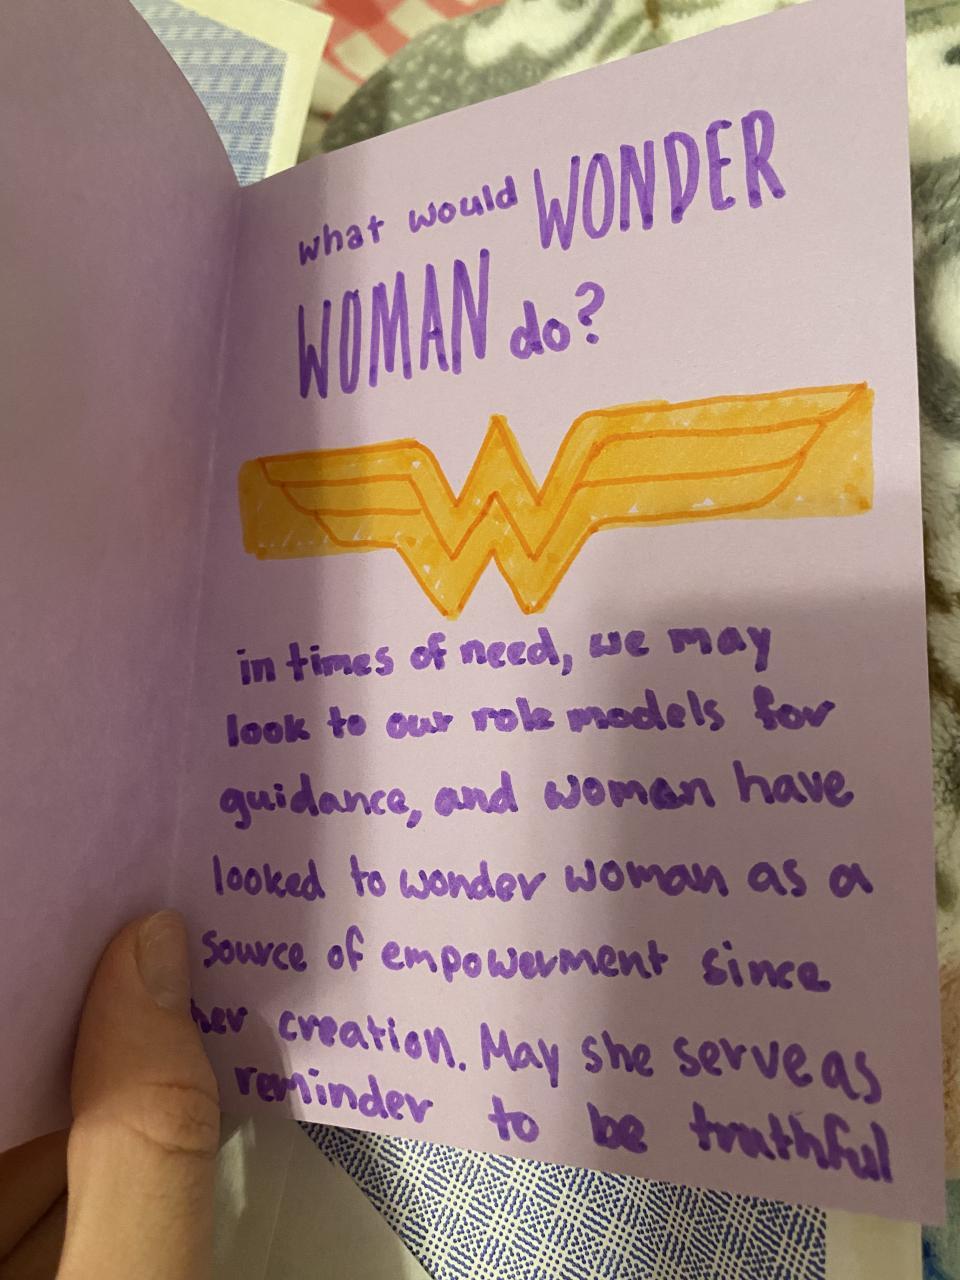 what would WONDER
WOMAN do?
in times of need, we may
look to our role models for
guidance, and woman have
looked to wonder woman as a
source of empowerment since
her creation. May she serve as
reminder to be truthful